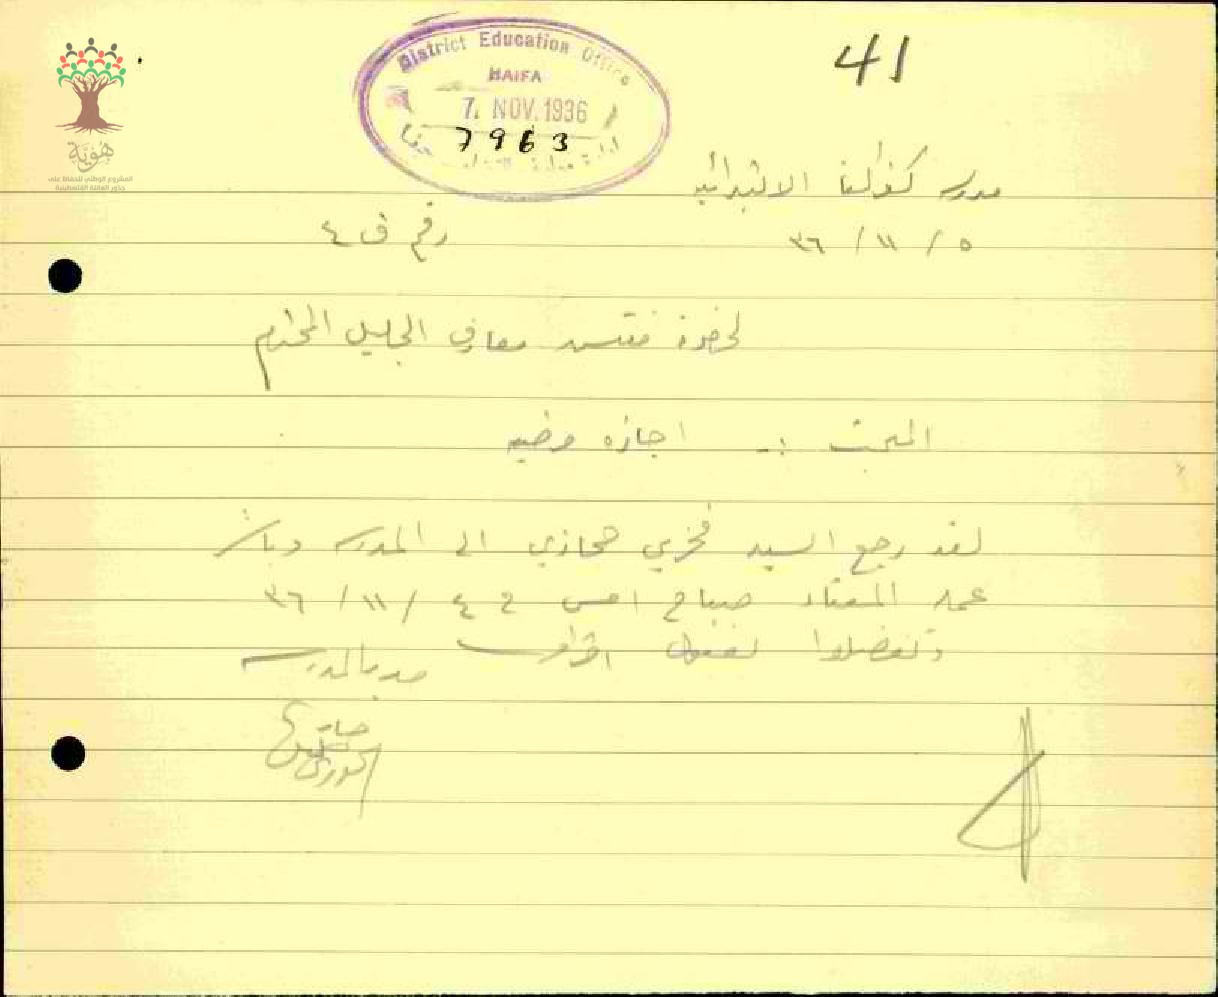 41
District Education Office
HAIFA
7. NOV. 1936
7963
هُوِيَّة
المشروع الوطني للحفاظ على
جذور العائلة الفلسطينية
مدرسة كفركنا الابتدائية
٥ / ١١ / ٣٦
رقم ق ٤
لحضرة مفتش معارف الجليل المحترم
المبحث :- اجازه مرضيه
لقد رجع السيد فخري حجازي الى المدرسه وباشر
عمله المعتاد صباح امس في ٤ / ١١ / ٣٦
وتفضلوا بقبول احترامي
مدير المدرسه
الخوري